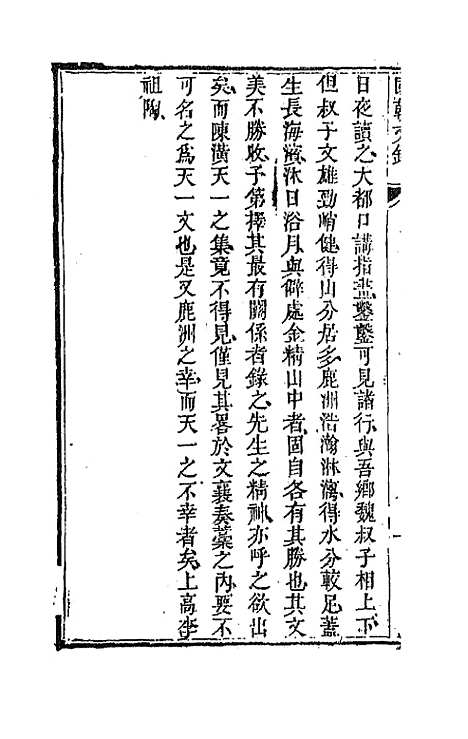 國朝文錄
日夜讀之大都口講指畫鑿鑿可見諸行與吾鄉魏叔子相上下
但叔子文雄勁峭健得山分居多鹿洲浩瀚淋漓得水分較足蓋
生長海濱沐日浴月與僻處金精山中者固自各有其勝也其文
美不勝收予第擇其最有關係者錄之先生之精神亦呼之欲出
矣而陳潢天一之集竟不得見僅見其畧於文襄奏藁之內要不
可名之爲天一文也是又鹿洲之幸而天一之不幸者矣上高李
祖陶